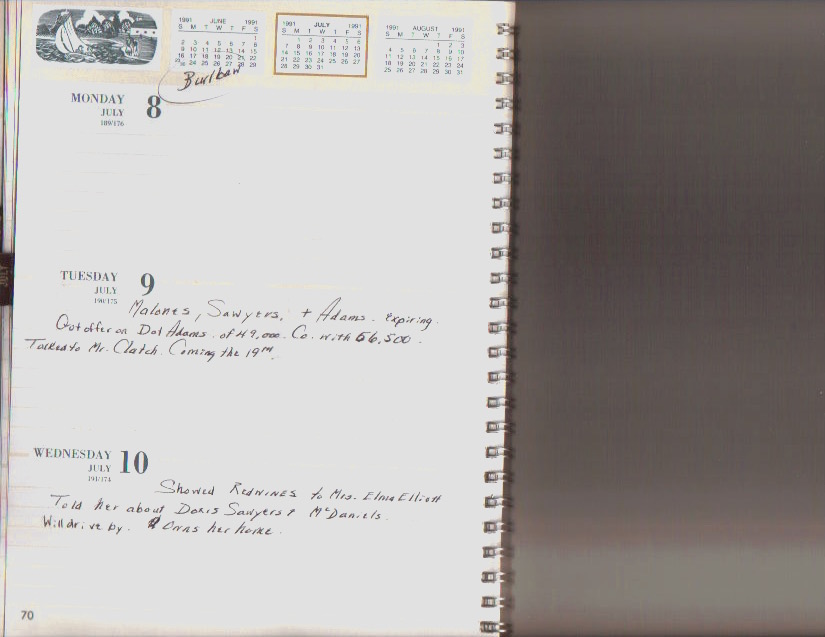 1991 JUNE 1991
S M T W T F S
1
2 3 4 5 6 7 8
9 10 11 12 13 14 15
16 17 18 19 20 21 22
23/30 24 25 26 27 28 29
1991 JULY 1991
S M T W T F S
1 2 3 4 5 6
7 8 9 10 11 12 13
14 15 16 17 18 19 20
21 22 23 24 25 26 27
28 29 30 31
1991 AUGUST 1991
S M T W T F S
1 2 3
4 5 6 7 8 9 10
11 12 13 14 15 16 17
18 19 20 21 22 23 24
25 26 27 28 29 30 31
Burlbaw
MONDAY 8
JULY
189/176
TUESDAY 9
JULY
190/175
Malones, Sawyers, + Adams. Expiring.
Got offer on Dot Adams. of 49,000. Co. with 56,500.
Talked to Mr. Clatch. Coming the 19th.
WEDNESDAY 10
JULY
191/174
Showed Rednines to Mrs. Elma Elliott
Told her about Doris Sawyers + McDaniels.
Will drive by. Owns her home.
JULY
70